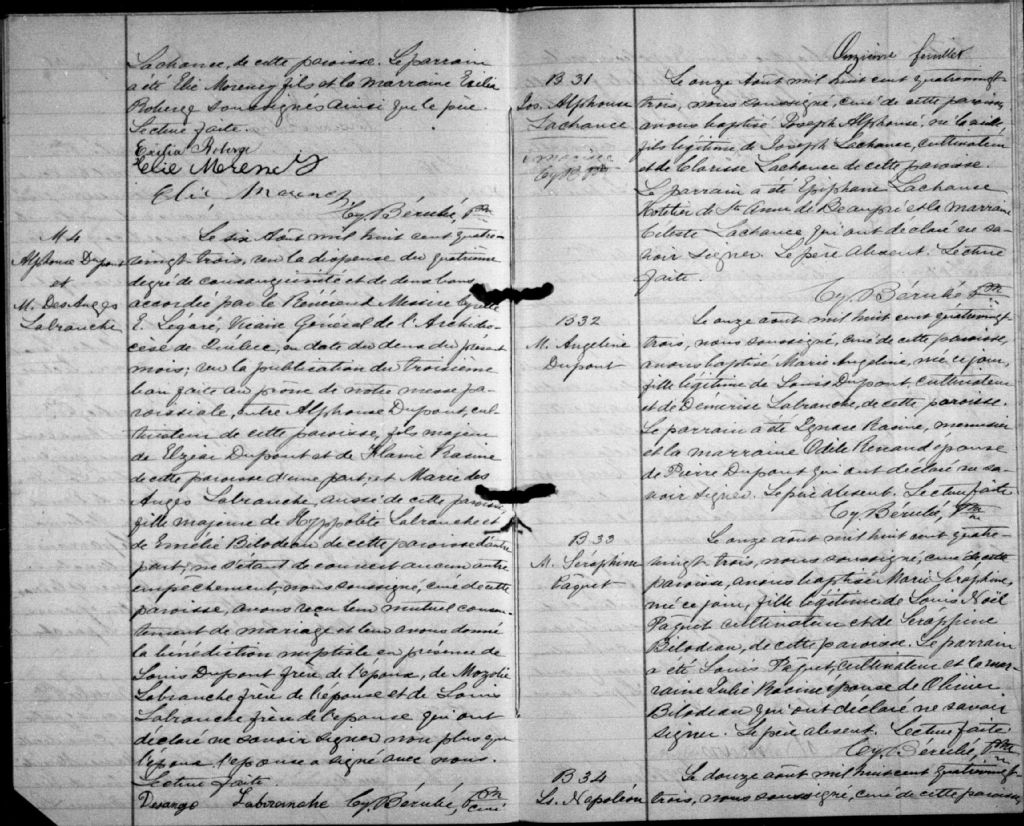 Lachance, de cette paroisse. Le parrain
a été Elie Morency fils et la marraine Exilia
Roberge soussignés ainsi que le père.
Lecture faite.
Exilia Roberge
Elie Morency
Elie Morency
Cy. Bérubé, Ptre
M 4
Alphonse Dupont
et
M. Des Anges
Labranche
Le six Août mil huit cent quatre-
vingt trois, vu la dispense du quatrième
degré de consanguinité et de deux bans
accordée par le Révérend Messire Cyrille
E. Légaré, Vicaire Général de l'Archidio-
cèse de Québec, en date du deux du présent
mois; vu la publication du troisième
ban faite au prône de notre messe pa-
roissiale, entre Alphonse Dupont, cul-
tivateur de cette paroisse, fils majeur
de Elzéar Dupont et de Flavie Racine
de cette paroisse d'une part; et Marie des
Anges Labranche, aussi de cette paroisse,
fille majeure de Hyppolite Labranche et
de Emélie Bilodeau de cette paroisse d'autre
part; ne s'étant découvert aucun autre
empêchement, nous soussigné, curé de cette
paroisse, avons reçu leur mutuel consen-
tement de mariage et leur avons donné
la bénédiction nuptiale en présence de
Louis Dupont frère de l'époux, de
Labranche frère de l'épouse et de Louis
Labranche frère de l'épouse qui ont
déclaré ne savoir signer non plus que
l'époux l'épouse a signé avec nous.
Lecture faite
Desange Labranche Cy. Bérubé, Ptre curé
Onzième feuillet
B 31
Jos. Alphonse
Lachance
Le onze Août mil huit cent quatrevingt
trois, nous soussigné, curé de cette paroisse,
avons baptisé Joseph Alphonse, né
fils légitime de Joseph Lachance, cultivateur
et de Clarisse Lachance de cette paroisse.
Le parrain a été Epiphane Lachance
Hotelier de Ste Anne de Beaupré et la marraine
Celeste Lachance qui ont déclaré ne sa-
voir signer. Le père absent. Lecture
faite.
Cy. Bérubé Ptre
B 32
M. Angeline
Dupont
Le onze août mil huit cent quatrevingt
trois, nous soussigné, curé de cette paroisse,
avons baptisé Marie Angeline, née ce jour,
fille légitime de Louis Dupont, cultivateur
et de Démerise Labranche, de cette paroisse.
Le parrain a été Ignace Racine, menuisier
et la marraine Odile Renaud épouse
de Pierre Dupont qui ont déclaré ne sa-
voir signer. Le père absent. Lecture faite
Cy. Bérubé, Ptre
B 33
M. Séraphine
Paquet
Le onze août mil huit cent quatre-
vingt trois, nous soussigné, curé de cette
paroisse, avons baptisé Marie Séraphine,
née ce jour, fille légitime de Louis Noël
Paquet cultivateur et de Séraphine
Bilodeau, de cette paroisse. Le parrain
a été Louis Paquet, cultivateur et la mar-
raine Julie Racine épouse de Olivier
Bilodeau qui ont déclaré ne savoir
signer. Le père absent. Lecture faite
Cy. Bérubé, Ptre
B 34
Ls. Napoléon
Le douze août mil huit cent quatrevingt
trois, nous soussigné, curé de cette paroisse,